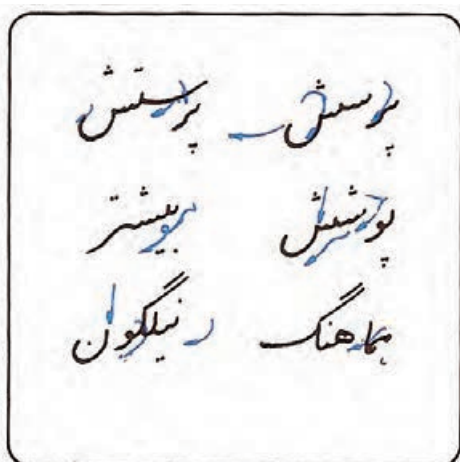 پرسش پرستش
پوشش بیشتر
هماهنگ نیلگون